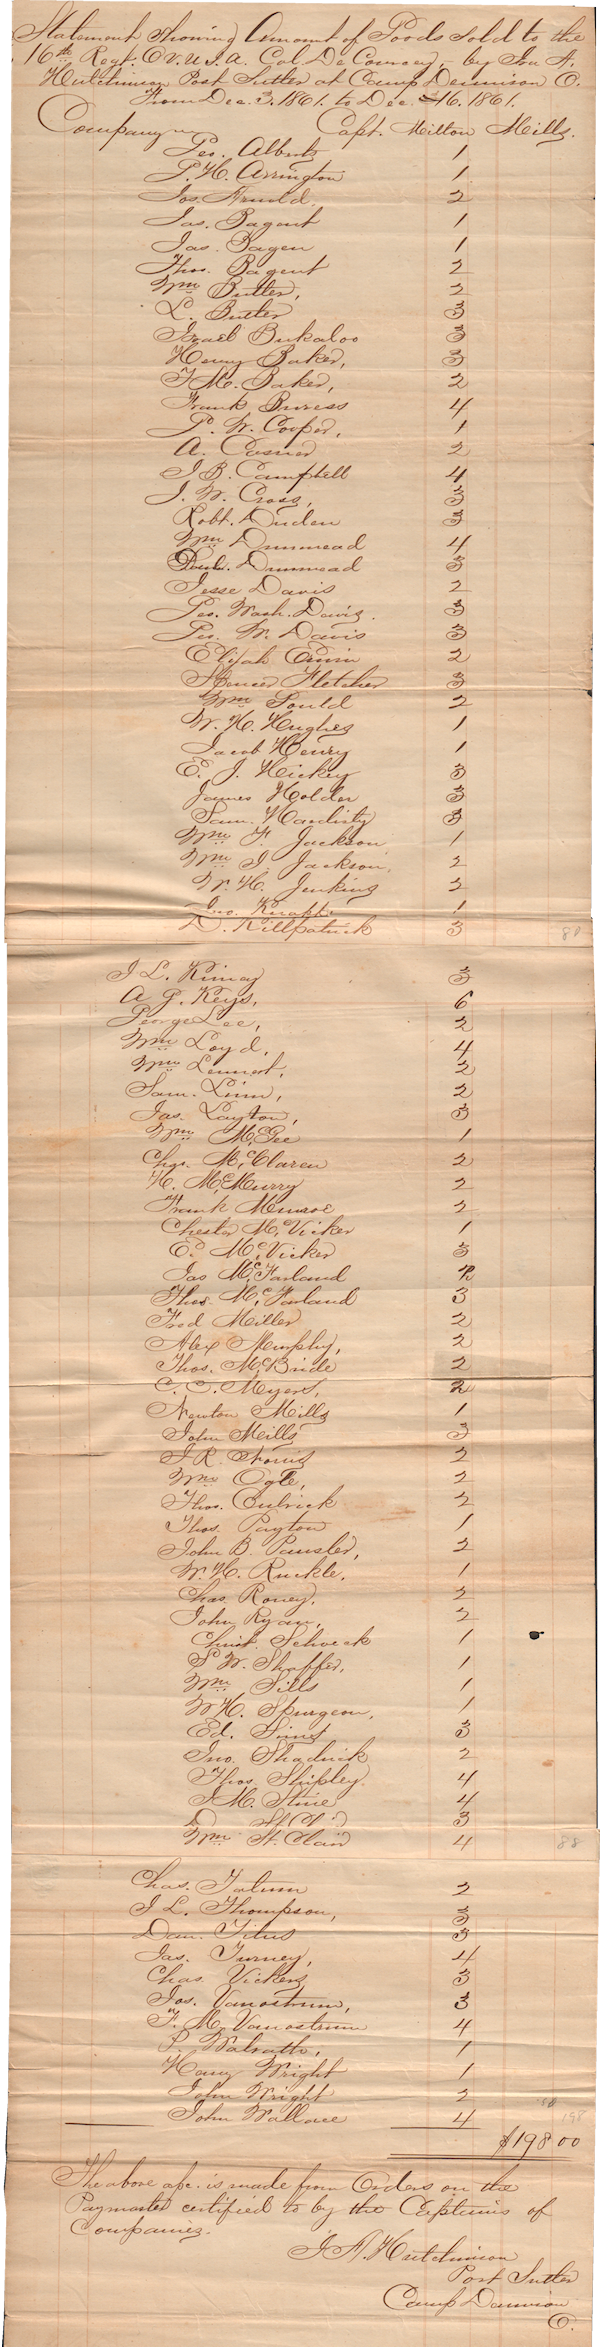 Statement showing Amount of Goods sold to the
16th Regt. O.V.U.S.A. Col. De Courcey, by Jno. A.
Hutchinson Post Sutler at Camp Dennison O.
From Dec. 3. 1861. to Dec. 16. 1861.
Company Capt. Milton Mills.
Geo. Alberts 1
P. H. Arrington 1
Jos. Arnold. 2
Jas. Bagent 1
Jas. Bagen 1
Thos. Bagent 2
Wm Butler, 2
L. Butler 3
Israel Bukaloo 3
Henry Baker, 3
F M. Baker, 2
Frank Buress 4
P. W. Cooper, 1
A. Cosner 2
J B. Campbell 4
J. W. Cross, 3
Robt. Duden 3
Wm Drummead 4
Drummead 3
Jesse Davis 2
Geo. Wash. Davis. 3
Geo. W. Davis 3
Elijah Erwin 2
Spencer Fletcher 3
Wm Gould 2
W. H. Hughes 1
Jacob Henry 1
E. J. Hickey 3
James Holder 3
Sam. Hardisty 3
Wm F. Jackson 1
Wm J. Jackson, 2
W. H. Jenkins 2
Geo. Knapp. 1
D. Killpatrick 3 80
J L. Kimay 3
A G. Keys, 6
George Lee, 2
Wm Loyd, 4
Wm Lennert, 2
Sam. Linn, 2
Jas. Layton, 3
Wm McGee 1
Chas. McClaren 2
H. McMurry 2
Frank Munroe 2
Chester McVicker 1
E. McVicker 3
Jas McFarland
Thos. McFarland 3
Fred Miller 2
Alex Murphy, 2
Thos. McBride 2
C. C. Myers, 2
Newton Mills 1
John Mills 3
J R. Norris 2
Wm Ogle, 2
Thos. Oulrick 2
Thos. Payton 1
John B. Pansler, 2
W. H. Ruckle. 1
Chas. Roney, 2
John Ryan, 2
Christ. Schock 1
S W. Shaffer, 1
Wm Sills 1
W H. Spurgeon, 1
Ed. Sims 3
Jno. Shadrick 2
Thos. Shipley. 4
J M. Stine 4
D St. Cl 3
Wm St. Clair 4 88
Chas. Tatum 2
J L. Thompson, 3
Dan. Titus 3
Jas. Turney, 4
Chas. Vickers 3
Jos. Vanostrum, 3
F. M. Vanostrum 4
P. Walrath, 1
Harry Wright 1
John Wright 2
John Wallace 4 198
$198.00
The above a/c. is made from Orders on the
Paymaster certified to by the Captains of
Companies.
J A. Hutchinson
Post Sutler
Camp Dennison
O.